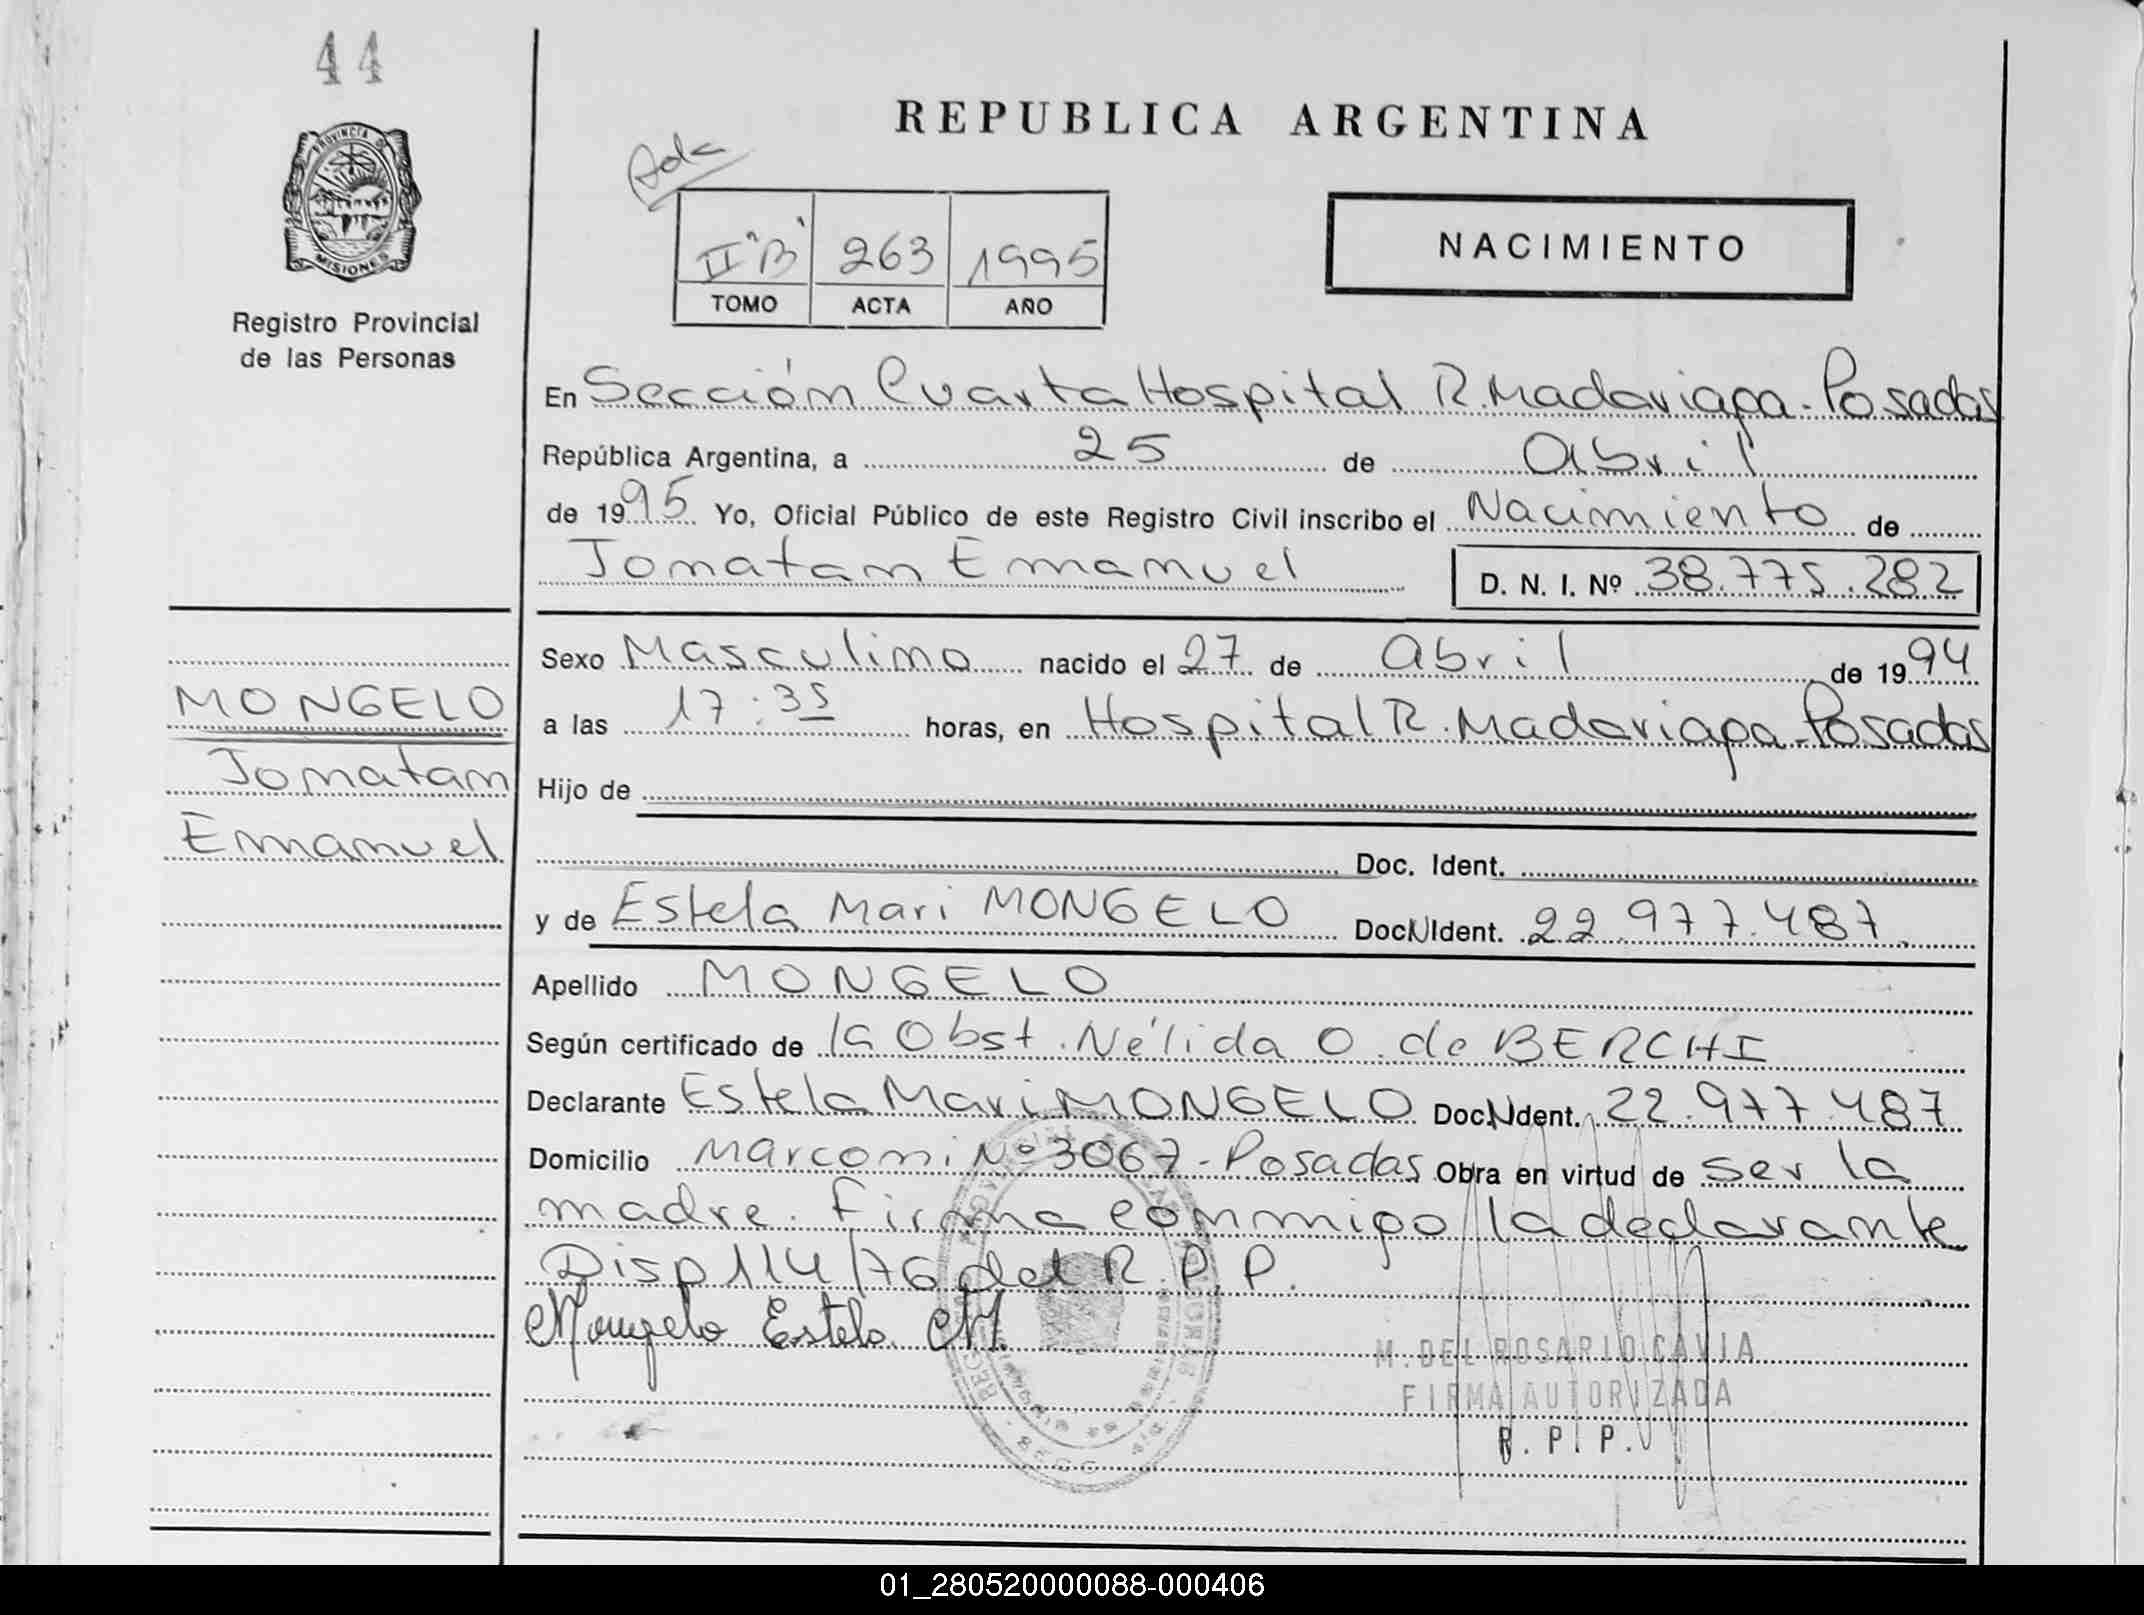 44
PROVINCIA DE
MISIONES
Registro Provincial
de las Personas
REPUBLICA ARGENTINA
II "B" 263 1995
TOMO ACTA AÑO
NACIMIENTO
En Sección Cuarta Hospital R. Madariaga - Posadas
República Argentina, a 25 de Abril
de 1995 Yo, Oficial Público de este Registro Civil inscribo el Nacimiento de
Jonatan Emanuel D. N. I. Nº 38.775.282
Sexo Masculino nacido el 27 de abril de 1994
a las 17:35 horas, en Hospital R. Madariaga - Posadas
Hijo de
Doc. Ident.
y de Estela Mari MONGELO Doc N Ident. 22.977.487.
Apellido MONGELO
Según certificado de la Obst. Nélida O. de BERCHI
Declarante Estela Mari MONGELO Doc. N Ident. 22.977.487
Domicilio Marconi Nº 3067 - Posadas Obra en virtud de ser la
madre. Firma conmigo la declarante
Disp 114/76 del R. P. P.
Mongelo Estela M.
M. DEL ROSARIO CAVIA
FIRMA AUTORIZADA
R. P. P.
MONGELO
Jonatan
Emanuel
01_280520000088-000406